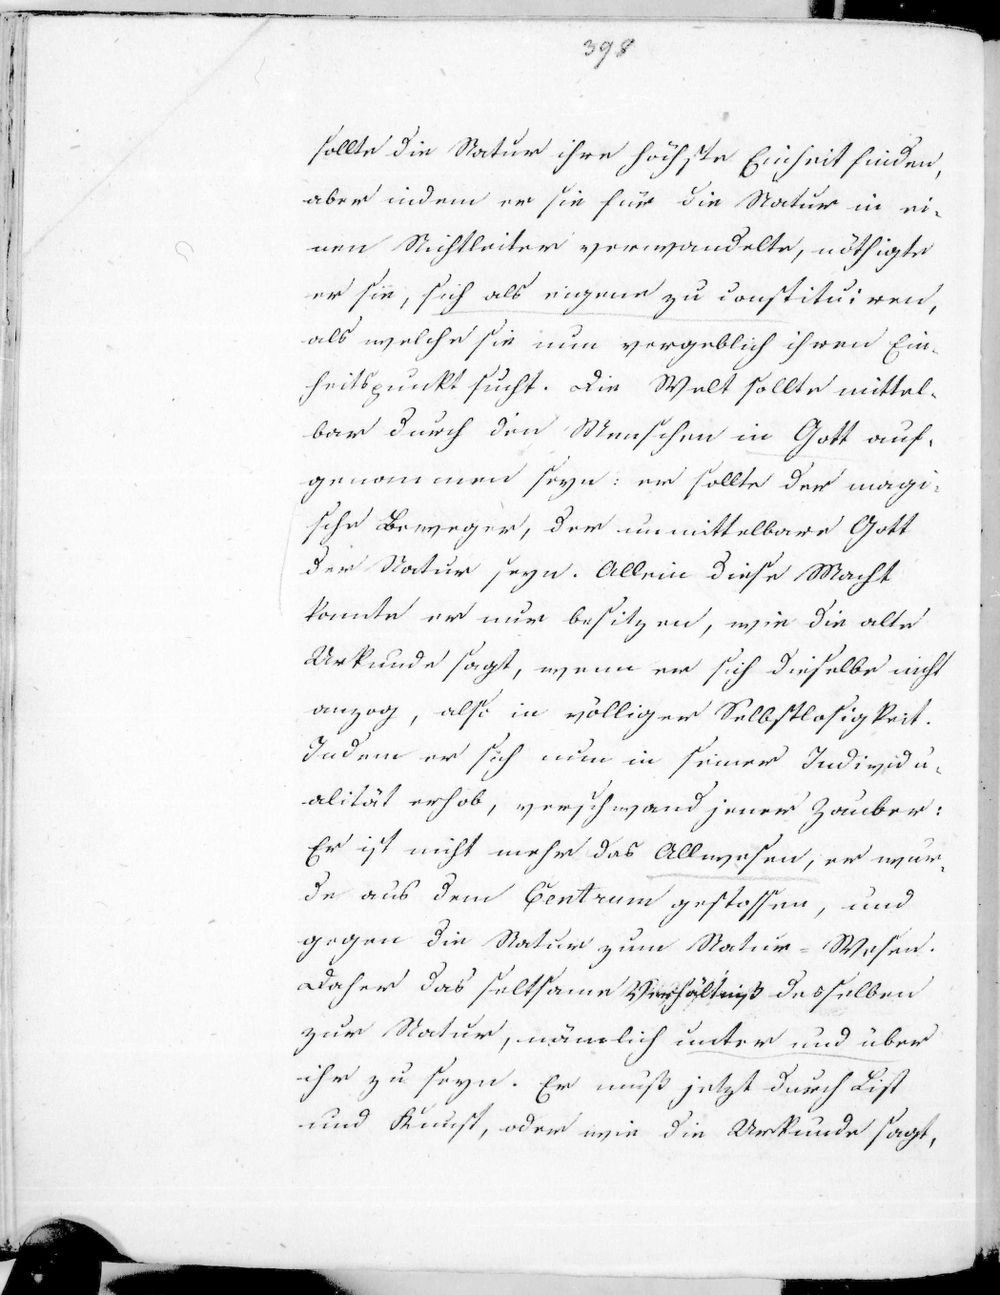 398
sollte die Natur ihre höchste Einheit finden,
aber indem er sie für die Natur in ei-
nen Nichtleiter verwandelte, nöthigte
er sie, sich als eigene zu constituiren,
als welche sie nun vergeblich ihren Ein-
heitspunkt sucht. Die Welt sollte mittel-
bar durch den Menschen in Gott auf-
genommen seyn: er sollte der magi-
sche Beweger, der unmittelbare Gott
der Natur seyn. Allein diese Macht
konnte er nur besitzen, wie die alte
Urkunde sagt, wenn er sich dieselbe nicht
anzog, also in völliger Selbstlosigkeit.
Indem er sich nun in seiner Individu-
alität erhob, verschwand jener Zauber:
Er ist nicht mehr das Allwesen, er wur-
de aus dem Centrum gestossen, und
gegen die Natur zum Natur-Wesen.
Daher das seltsame Verhältniß desselben
zur Natur, nämlich unter und über
ihr zu seyn. Er muß jetzt durch List
und Kunst, oder wie die Urkunde sagt,